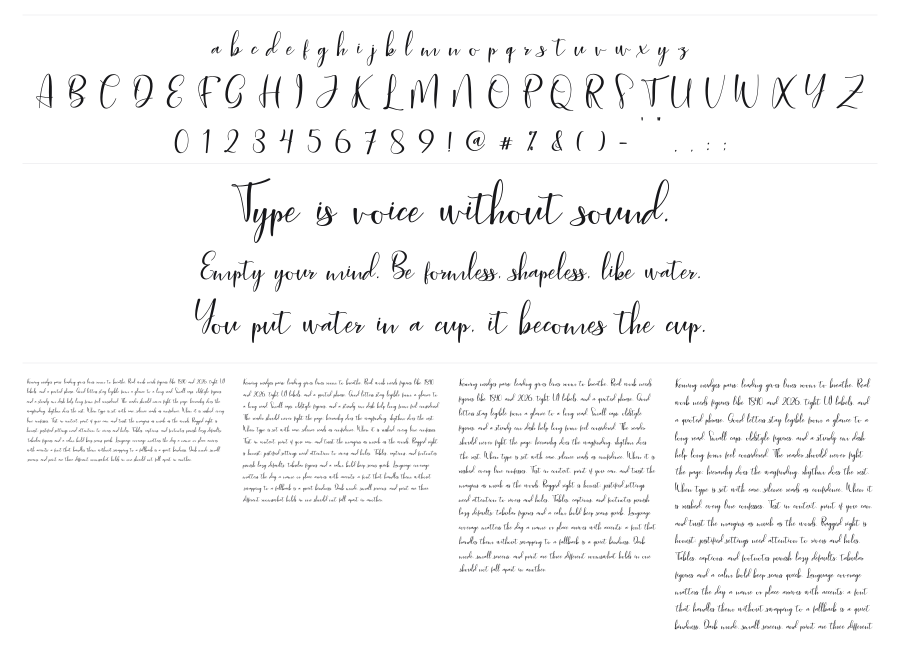 a b c d e f g h i j k l m n o p q r s t u v w x y z
A B C D E F G H I J K L M N O P Q R S T U V W X Y Z
0 1 2 3 4 5 6 7 8 9 ! @ # % & ( ) - . . : :
Type is voice without sound.
Empty your mind. Be formless. shapeless. like water.
You put water in a cup. it becomes the cup.
Kerning nudges pace. leading gives lines room to breathe. Real work needs figures like 1890 and 2026. tight UI
labels. and a quoted phrase. Good letters stay legible from a glance to a long read. Small caps. oldstyle
figures. and a steady em dash help long forms feel considered. The reader should never fight the page. hierarchy does the
wayfinding. rhythm does the rest. When type is set with care. silence reads as confidence. When it is rushed. every
line confesses. Test in context. print if you can. and trust the margins as much as the words. Ragged right is
honest. justified setting need attention to rivers and holes. Tables. captions. and footnotes punish lazy defaults.
tabular figures and a calm bold keep scans quick. Language coverage matters the day a name or place arrives
with accents. a font that handles them without swapping to a fallback is a quiet kindness. Dark mode. small
screens. and print are three different
Kerning nudges pace. leading gives lines room to breathe. Real work needs figures like 1890
and 2026. tight UI labels. and a quoted phrase. Good letters stay legible from a glance to
a long read. Small caps. oldstyle figures. and a steady em dash help long forms feel considered.
The reader should never fight the page. hierarchy does the wayfinding. rhythm does the rest.
When type is set with care. silence reads as confidence. When it is rushed. every line confesses.
Test in context. print if you can. and trust the margins as much as the words. Ragged right
is honest. justified settings need attention to rivers and holes. Tables. captions. and footnotes
punish lazy defaults. tabular figures and a calm bold keep scans quick. Language coverage
matters the day a name or place arrives with accents. a font that handles them without
swapping to a fallback is a quiet kindness. Dark mode. small screens. and print are three
different
Kerning nudges pace. leading gives lines room to breathe. Real work needs
figures like 1890 and 2026. tight UI labels. and a quoted phrase. Good
letters stay legible from a glance to a long read. Small caps. oldstyle
figures. and a steady em dash help long forms feel considered. The reader
should never fight the page. hierarchy does the wayfinding. rhythm does
the rest. When type is set with care. silence reads as confidence. When it is
rushed. every line confesses. Test in context. print if you can. and trust the
margins as much as the words. Ragged right is honest. justified settings
need attention to rivers and holes. Tables. captions. and footnotes punish
lazy defaults. tabular figures and a calm bold keep scans quick. Language
coverage matters the day a name or place arrives with accents. a font that
handles them without swapping to a fallback is a quiet kindness. Dark
mode. small screens. and print are three different environments. holds in one
should not fall apart in another.
Kerning nudges pace. leading gives lines room to breathe. Real
work needs figures like 1890 and 2026. tight UI labels. and
a quoted phrase. Good letters stay legible from a glance to a
long read. Small caps. oldstyle figures. and a steady em dash
help long forms feel considered. The reader should never fight
the page. hierarchy does the wayfinding. rhythm does the rest.
When type is set with care. silence reads as confidence. When it
is rushed. every line confesses. Test in context. print if you can.
and trust the margins as much as the words. Ragged right is
honest. justified settings need attention to rivers and holes.
Tables. captions. and footnotes punish lazy defaults. tabular
figures and a calm bold keep scans quick. Language coverage
matters the day a name or place arrives with accents. a font
that handles them without swapping to a fallback is a quiet
kindness. Dark mode. small screens. and print are three different